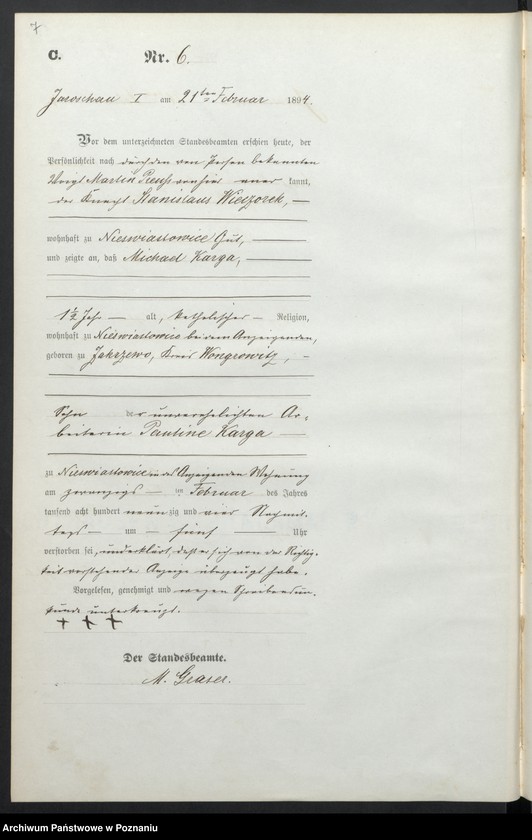 7
C. Nr. 6.
Jaroschau I am 21ten Februar 1894.
Vor dem unterzeichneten Standesbeamten erschien heute, der
Persönlichkeit nach durch den von Person bekannten
Voigt Martin von hier aner kannt,
der Knecht Stanislaus Wieczorek,
wohnhaft zu Nieswiastowice Gut,
und zeigte an, daß Michael Karga,
1 1/2 Jahr alt, katholischer Religion,
wohnhaft zu Nieswiastowice bei dem Anzeigenden,
geboren zu Jakszewo, Kreis Wongrowitz,
Sohn der unverehelichten Ar-
beiterin Pauline Karga
zu Nieswiastowice in des Anzeigenden Wohnung
am zwanzigs ten Februar des Jahres
tausend acht hundert neun zig und vier Nachmit-
tags um fünf Uhr
verstorben sei, und erklärt, daß er sich von der Richtig-
keit vorstehender Anzeige überzeugt habe.
Vorgelesen, genehmigt und wegen Schreibensun-
kunde unterkreuzt.
+ + +
Der Standesbeamte.
M. Graser.
Archiwum Państwowe w Poznaniu